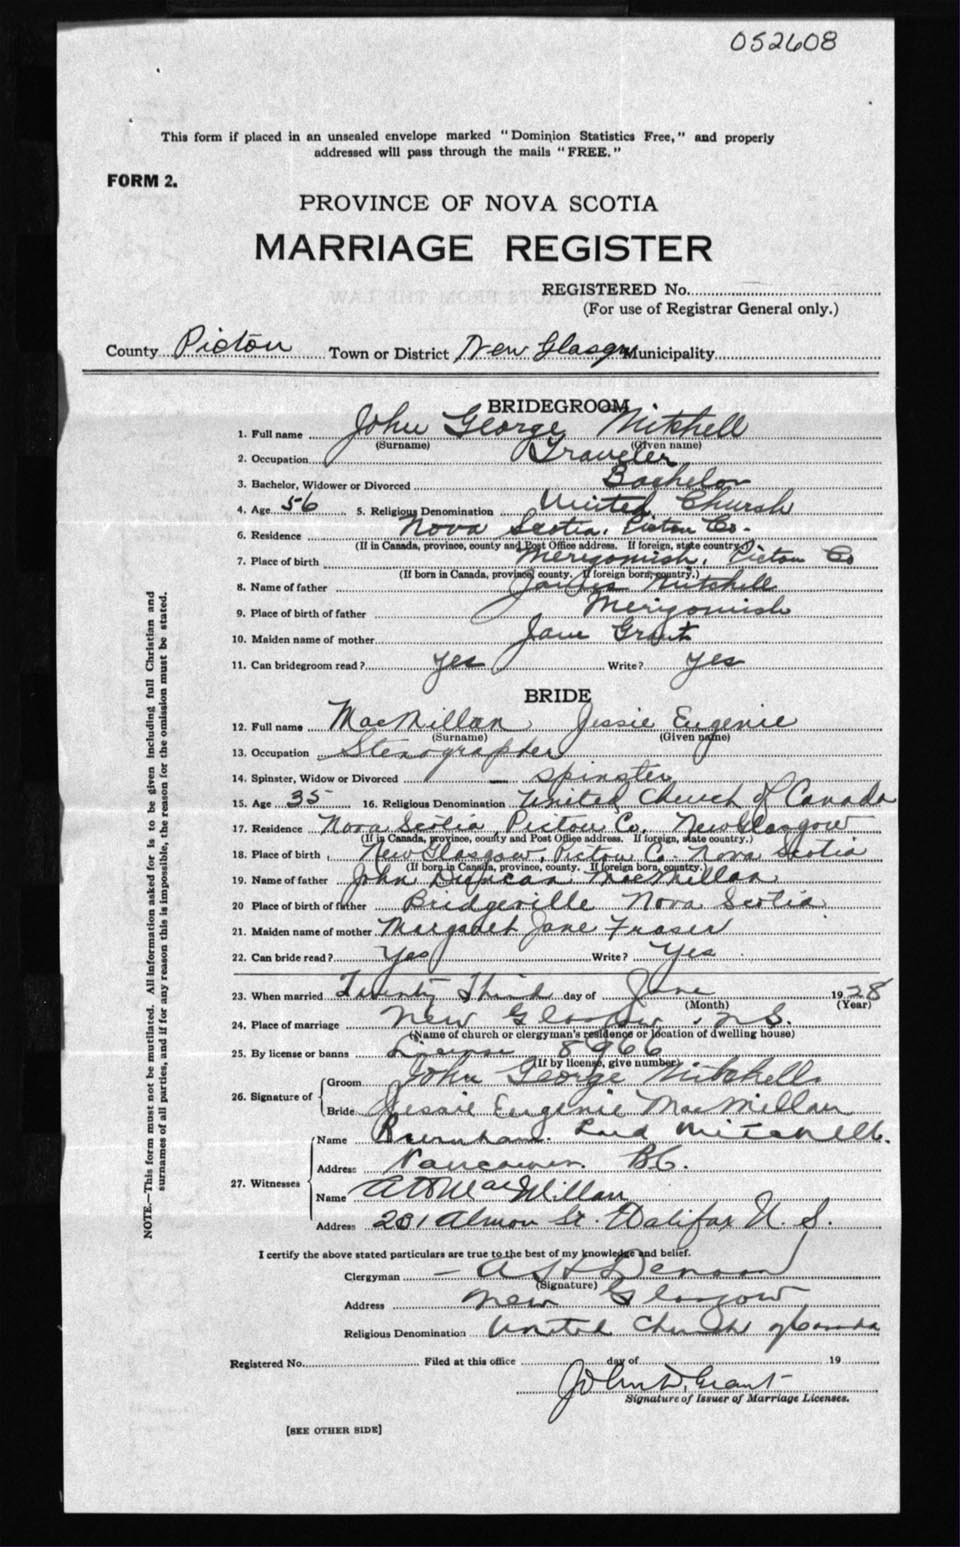 052608
This form if placed in an unsealed envelope marked "Dominion Statistics Free," and properly
addressed will pass through the mails "FREE."
FORM 2.
PROVINCE OF NOVA SCOTIA
MARRIAGE REGISTER
REGISTERED No.
(For use of Registrar General only.)
County Pictou Town or District New Glasgow Municipality
BRIDEGROOM
1. Full name John George Mitchell
(Surname) (Given name)
2. Occupation Traveler
3. Bachelor, Widower or Divorced Bachelor
4. Age 56 5. Religious Denomination United Church
6. Residence Nova Scotia, Pictou Co.
(If in Canada, province, county and Post Office address. If foreign, state country.)
7. Place of birth Merigomish, Pictou Co
(If born in Canada, province, county. If foreign born, country.)
8. Name of father James Mitchell
9. Place of birth of father Merigomish
10. Maiden name of mother Jane Grant
11. Can bridegroom read? yes Write? yes
BRIDE
12. Full name MacMillan Jessie Eugenie
(Surname) (Given name)
13. Occupation Stenographer
14. Spinster, Widow or Divorced – spinster
15. Age 35 16. Religious Denomination United Church of Canada
17. Residence Nova Scotia Pictou Co. New Glasgow
(If in Canada, province, county and Post Office address. If foreign, state country.)
18. Place of birth New Glasgow, Pictou Co. Nova Scotia
(If born in Canada, province, county. If foreign born, country.)
19. Name of father John Duncan MacMillan
20 Place of birth of father Bridgeville Nova Scotia
21. Maiden name of mother Margaret Jane Fraser
22. Can bride read? Yes Write? Yes
23. When married Twenty Third day of June 1928
(Month) (Year)
24. Place of marriage New Glasgow, N.S.
(Name of church or clergyman's residence or location of dwelling house)
25. By license or banns License 8966
(If by license, give number)
26. Signature of Groom John George Mitchell
Bride Jessie Eugenie MacMillan
27. Witnesses
Name Mitchell.
Address Vancouver B.C.
Name MacMillan
Address 201 Almon St. Halifax N. S.
I certify the above stated particulars are true to the best of my knowledge and belief.
Clergyman –
(Signature)
Address New Glasgow
Religious Denomination United Church of Canada
Registered No. Filed at this office day of 19
John D. Grant
Signature of Issuer of Marriage Licenses.
[SEE OTHER SIDE]
NOTE.—This form must not be mutilated. All information asked for is to be given including full Christian and
surnames of all parties, and if for any reason this is impossible, the reason for the omission must be stated.